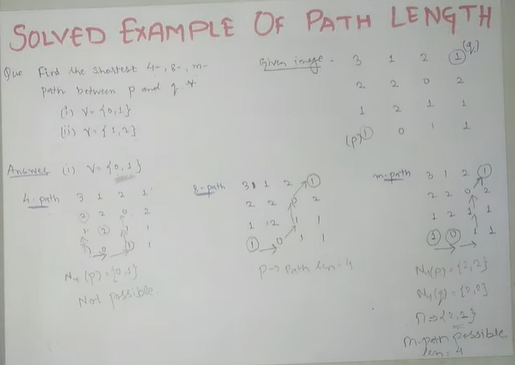 SOLVED EXAMPLE OF PATH LENGTH
Que Find the shortest 4-, 8-, m-
path between p and q
(i) V = {0,1}
(ii) V = {1,2}
Given image - 3 1 2 1 (q)
2 2 0 2
1 2 1 1
(p) 1 0 1 1
Answer (i) V = {0,1}
4-path 3 1 2 1
2 2 0 2
1 2 1 1
0 1 1
N4 (p) = {0,1}
Not possible
8-path 3 1 2 1
2 2 0 2
1 2 1 1
1 0 1 1
p → Path len = 4
m-path 3 1 2 1
2 2 0 2
1 2 1 1
1 0 1 1
N4(p) = {2,2}
N4(q) =
m-path possible
len = 4